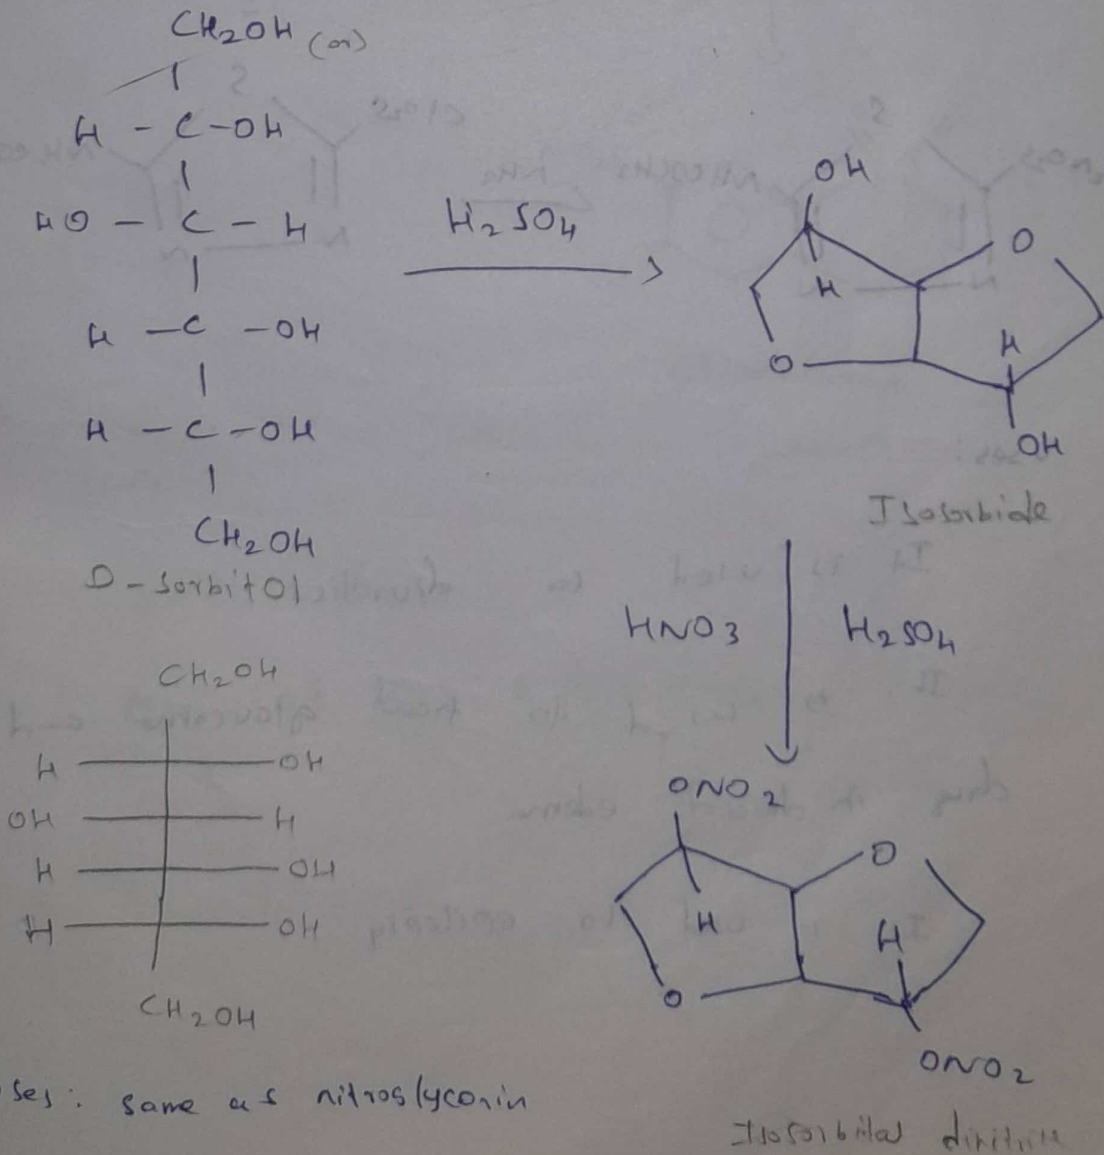 CH2OH (or)
H - C - OH
HO - C - H
H - C - OH
H - C - OH
CH2OH
D - Sorbitol
H2SO4
OH
H
O
O
H
OH
Isosorbide
HNO3 H2SO4
CH2OH
H OH
OH H
H OH
H OH
CH2OH
ONO2
H
O
O
H
ONO2
ses : same as nitroglycorin